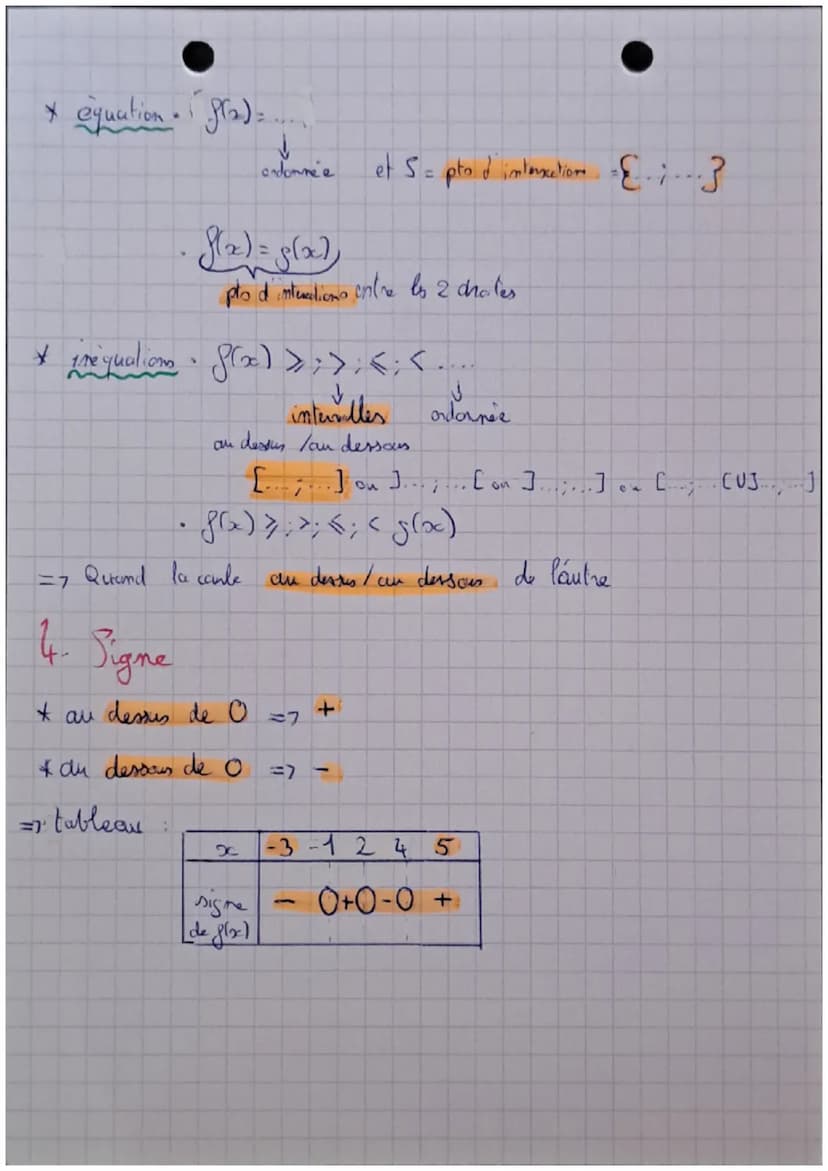 * équation . f(x) = ....
↓
ordonnée et S = pts d'intersection = {...;...}
. f(x) = g(x)
pts d'intersections entre les 2 droites
* inéquations . f(x) ⩾ ; > ; ⩽ ; < ....
↓ ↓
intervalles ordonnée
au dessus / au dessous
[...;...] ou ]...;...[ ou ]...;...] ou [...;...[U]...;...]
. f(x) ⩾ ; > ; ⩽ ; < g(x)
=> Quand la courbe au dessus / au dessous de l'autre
4. Signe
* au dessus de 0 => +
* au dessous de 0 => -
=> tableau :
x -3 -1 2 4 5
signe - 0 + 0 - 0 +
de f(x)